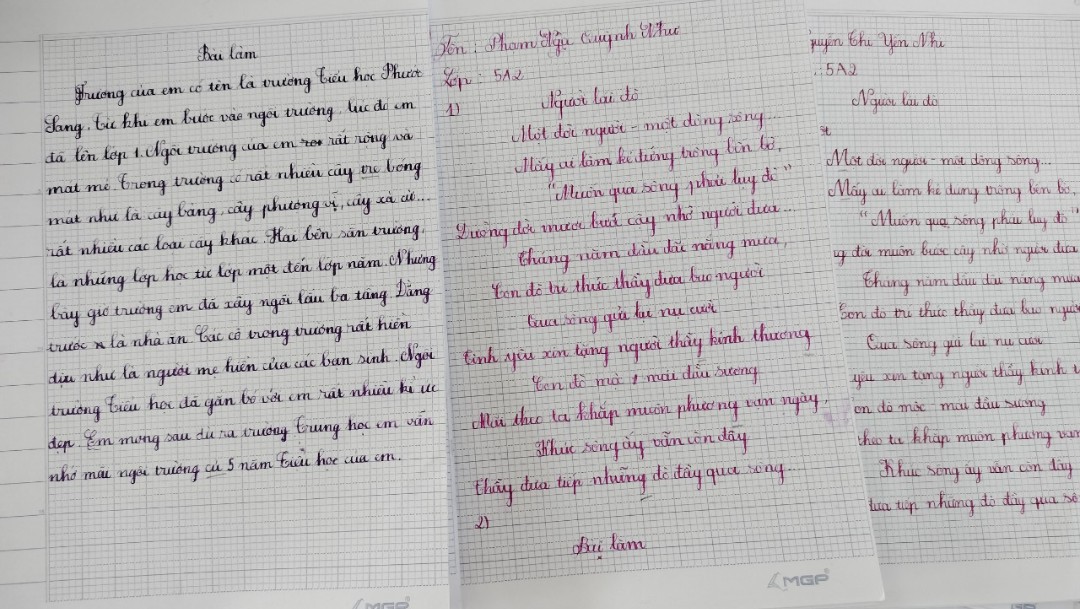 Bài làm
Trường của em có tên là trường Tiểu học Phước
Sang. Từ khi em bước vào ngôi trường, lúc đó em
đã lên lớp 1. Ngôi trường của em rất rộng và
mát mẻ. Trong trường có rất nhiều cây tre bóng
mát như là cây bàng, cây phượng vĩ, cây xà cừ...
rất nhiều các loài cây khác. Hai bên sân trường,
là những lớp học từ lớp một đến lớp năm. Nhưng
bây giờ trường em đã xây ngôi lầu ba tầng. Đằng
trước là nhà ăn. Các cô trong trường rất hiền
dịu như là người mẹ hiền của các bạn sinh. Ngôi
trường Tiểu học đã gắn bó với em rất nhiều kí ức
đẹp. Em mong sau dù ra trường Trung học em vẫn
nhớ mãi ngôi trường cũ 5 năm Tiểu học của em.
MGP
Tên : Phạm Ngọc Quỳnh Như
Lớp : 5A2
1)
Người lái đò
Một đời người - một dòng sông...
Mấy ai làm kẻ đứng trông bến bờ,
"Muốn qua sông phải luỵ đò"
Đường đời muôn bước cậy nhờ người đưa...
Tháng năm dầu dãi nắng mưa,
Con đò tri thức thầy đưa bao người
Qua sông gửi lại nụ cười
Tình yêu xin tặng người thầy kính thương
Con đò mộc 1 mái đầu sương
Mãi theo ta khắp muôn phương vạn ngày,
Khúc sông ấy vẫn còn đây
Thầy đưa tiếp những đò đầy qua sông...
2)
Bài làm
MGP
guyễn Thị Yến Nhi
: 5A2
Người lái đò
Một đời người - một dòng sông...
Mấy ai làm kẻ đứng trông bến bờ,
"Muốn qua sông phải luỵ đò"
ng đời muôn bước cậy nhờ người đưa
Tháng năm dầu dãi nắng mưa
Con đò tri thức thầy đưa bao người
Qua sông gửi lại nụ cười
yêu xin tặng người thầy kính t
on đò mộc mái đầu sương
theo ta khắp muôn phương vạn
Khúc sông ấy vẫn còn đây
đưa tiếp những đò đầy qua sô